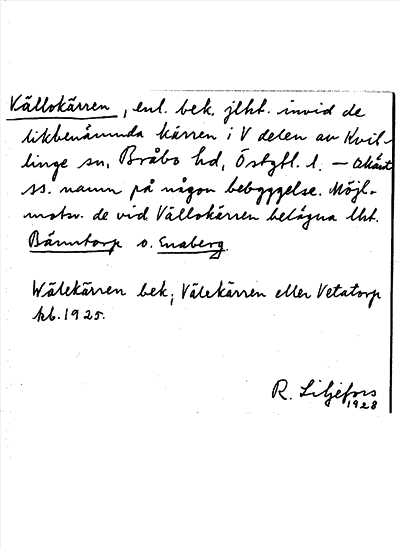 Vällokärren, enl. bek. jlht. invid de
likbenämnda kärren i V delen av Kvil-
linge sn, Bråbo hd, Östgtl. l. – Okänt
ss. namn på någon bebyggelse. Möjl.
motsv. de vid Vällokärren belägna lht.
Bänntorp o. Enaberg.
Wälekärren bek; Välekärren eller Vetatorp
kb. 1925.
R. Liljefors
1928